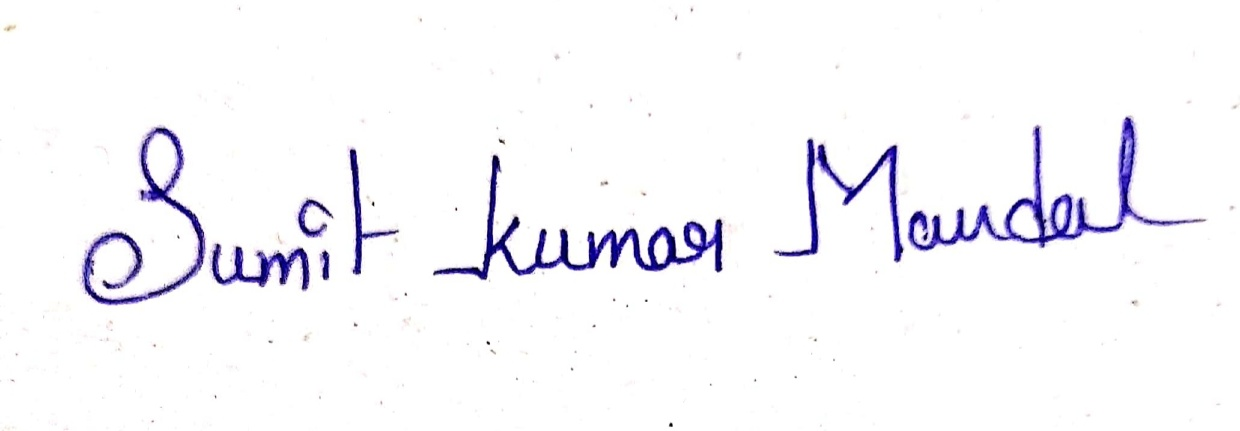 Sumit kumar Mandal